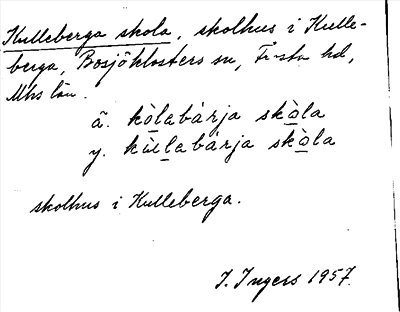 Kulleberga skola, skolhus i Kulle-
berga, Bosjöklosters sn, Frosta hd,
Mhs län.
ä. kòlabàrja skòla
y. kùlabàrja skòla
skolhus i Kulleberga.
I. Ingers 1957.